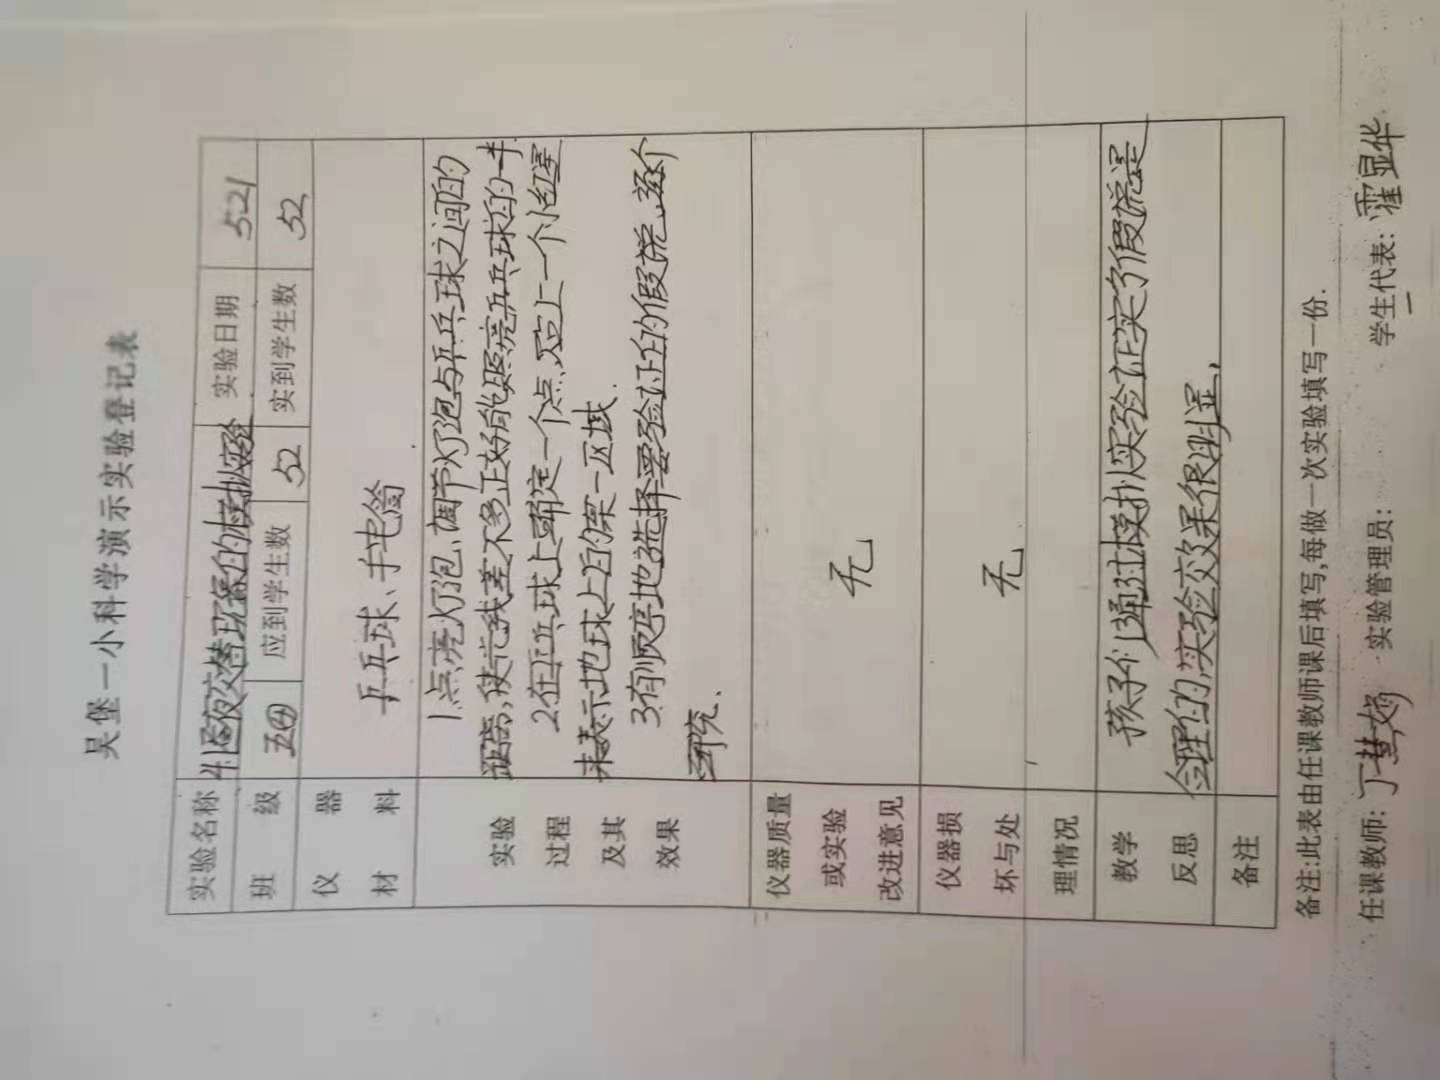 吴堡一小科学演示实验登记表
实验名称 4.1昼夜交替现象的模拟实验 实验日期 5.21
班级 五(4) 应到学生数 52 实到学生数 52
仪器
材料
乒乓球、手电筒
实验
过程
及其
效果
1.点亮灯泡,调节灯泡与乒乓球之间的
距离,使光线差不多正好能照亮乒乓球的一半.
2.在乒乓球上确定一个点,点上一个小红点
来表示地球上的某一区域.
3.有顺序地选择要验证的假说,逐个
研究.
仪器质量
或实验
改进意见
无
仪器损
坏与处
理情况
无
教学
反思
孩子们通过模拟实验证实了假说是
合理的,实验效果很明显.
备注
备注:此表由任课教师课后填写,每做一次实验填写一份.
任课教师:丁慧娟 实验管理员: 学生代表:霍显华